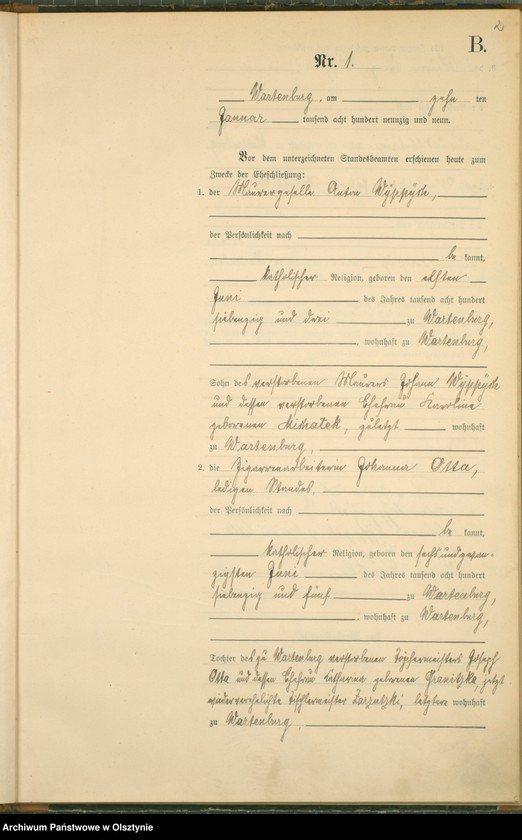 2
B.
Nr. 1.
Wartenberg, am zehn ten
Januar tausend acht hundert neunzig und neun.
Vor dem unterzeichneten Standesbeamten erschienen heute zum
Zwecke der Eheschließung:
1. der Maurergeselle Anton
der Persönlichkeit nach
be kannt,
katholischer Religion, geboren den elften
Juni des Jahres tausend acht hundert
siebenzig und drei zu Wartenberg,
, wohnhaft zu Wartenberg,
Sohn des verstorbenen Maurers Johann
und dessen verstorbenen Ehefrau Karoline
geborenen Michalek, zuletzt wohnhaft
zu Wartenberg,
2. die Zigarrenarbeiterin Johanna Otta,
ledigen Standes,
der Persönlichkeit nach
be kannt,
katholischer Religion, geboren den sechsundzwan-
zigsten Juni des Jahres tausend acht hundert
siebenzig und fünf zu Wartenberg,
, wohnhaft zu Wartenberg,
Tochter des zu Wartenberg verstorbenen Töpfermeisters Joseph
Otta und dessen Ehefrau Katharina geborenen jetzt
wiederverehelichte Tischlermeister letztere wohnhaft
zu Wartenberg.
Archiwum Państwowe w Olsztynie